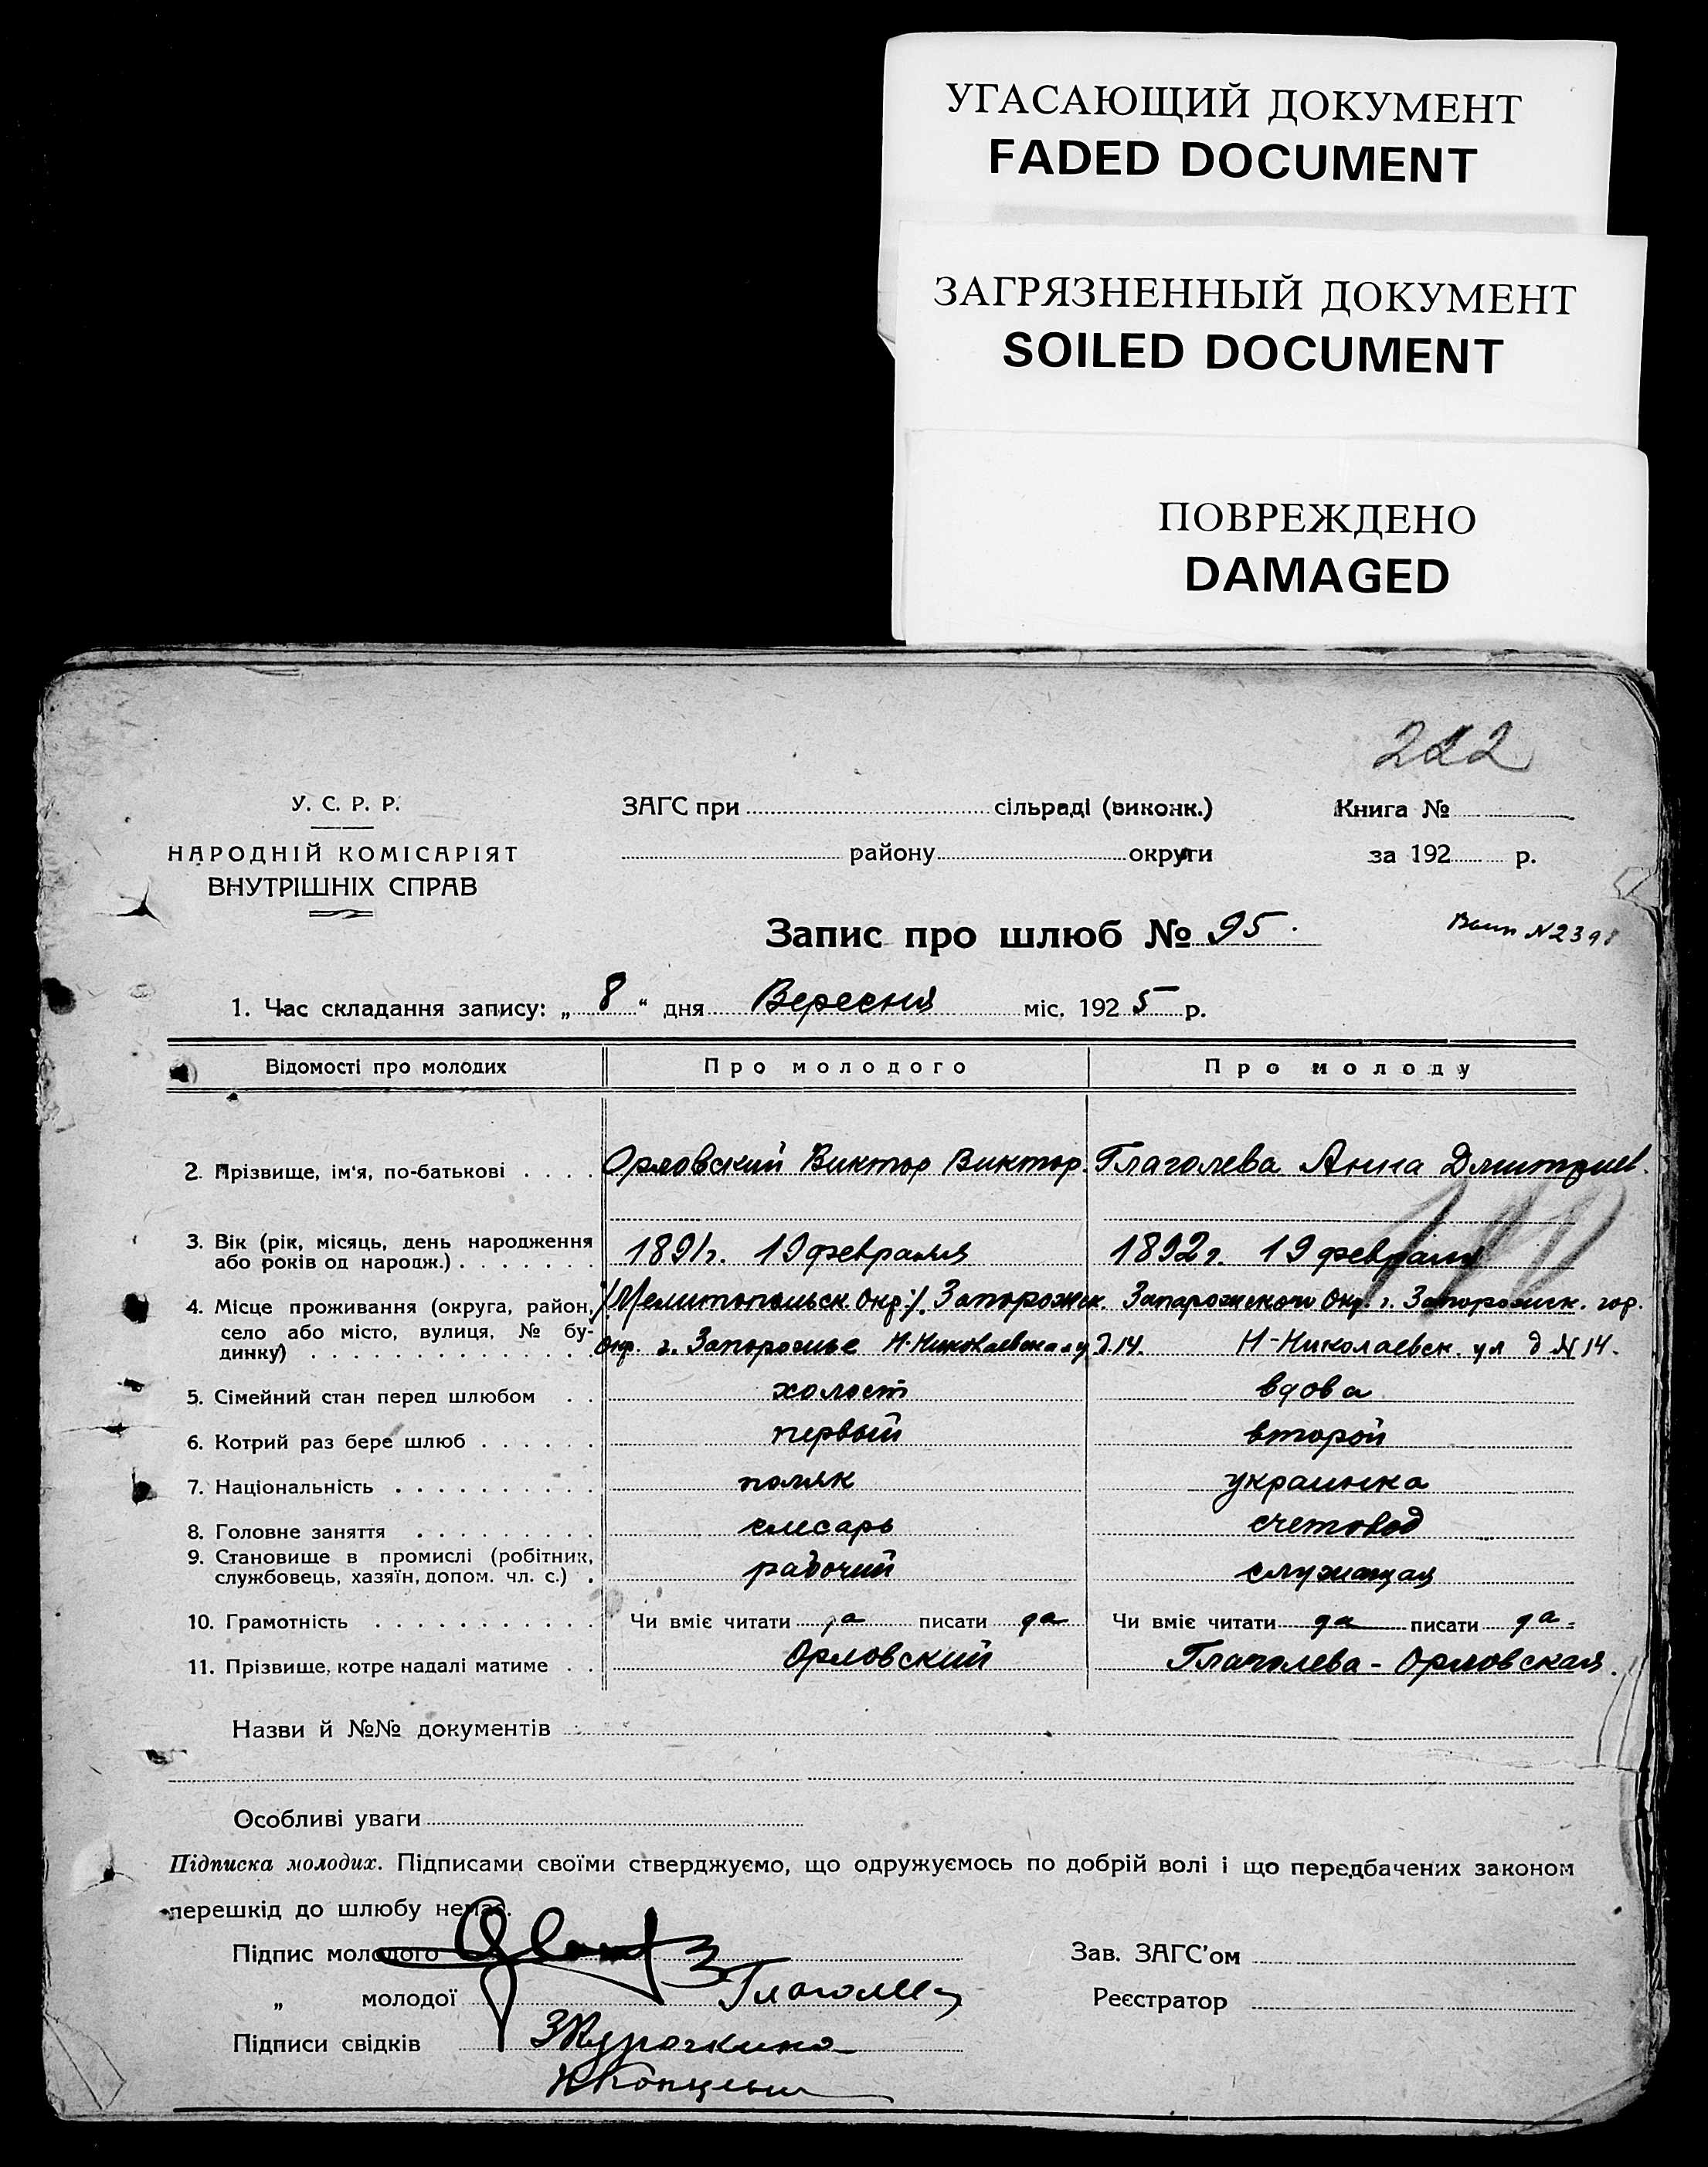 УГАСАЮЩИЙ ДОКУМЕНТ
FADED DOCUMENT
ЗАГРЯЗНЕННЫЙ ДОКУМЕНТ
SOILED DOCUMENT
ПОВРЕЖДЕНО
DAMAGED
222
У. С. Р. Р.
НАРОДНІЙ КОМІСАРІЯТ
ВНУТРІШНІХ СПРАВ
ЗАГС при сільраді (виконк.)
району округи
Книга №
за 192 р.
Запис про шлюб № 95.
№ 2398
1. Час складання запису: „ 8 “ дня Вересня міс. 192 5 р.
Відомості про молодих Про молодого Про молоду
2. Прізвище, ім'я, по-батькові . . . . Орловский Виктор Виктор. Глаголева Анна Дмитриев.
3. Вік (рік, місяць, день народження
або років од народж.) . . . . . . . 1891г. 19 февраля 1892г. 19 февраля
4. Місце проживання (округа, район, /Мелитопольск. Окр:/. Запорожск. Запарожского Окр. г. Запорожск. гор.
село або місто, вулиця, № бу-
динку) . . . . . . . . . . . . . Окр. г. Запорожье Н-Николаевская у д.14. Н-Николаевск. ул д N 14.
5. Сімейний стан перед шлюбом . . холост вдова
6. Котрий раз бере шлюб . . . . . . первый второй
7. Національність . . . . . . . . . . поляк украинка
8. Головне заняття . . . . . . . . . слесарь счетовод
9. Становище в промислі (робітник,
службовець, хазяїн, допом. чл. с.) . рабочий служащая
10. Грамотність . . . . . . . . . . . Чи вміє читати да писати да Чи вміє читати да писати да.
11. Прізвище, котре надалі матиме . . Орловский Глаголева - Орловская.
Назви й №№ документів
Особливі уваги
Підписка молодих. Підписами своїми стверджуємо, що одружуємось по добрій волі і що передбачених законом
перешкід до шлюбу немає.
Підпис молодого
Зав. ЗАГС'ом
„ молодої Глаголева
Реєстратор
Підписи свідків ЗКурочкина